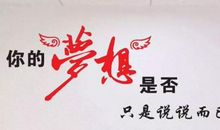 你的夢想是否
只是说说而已